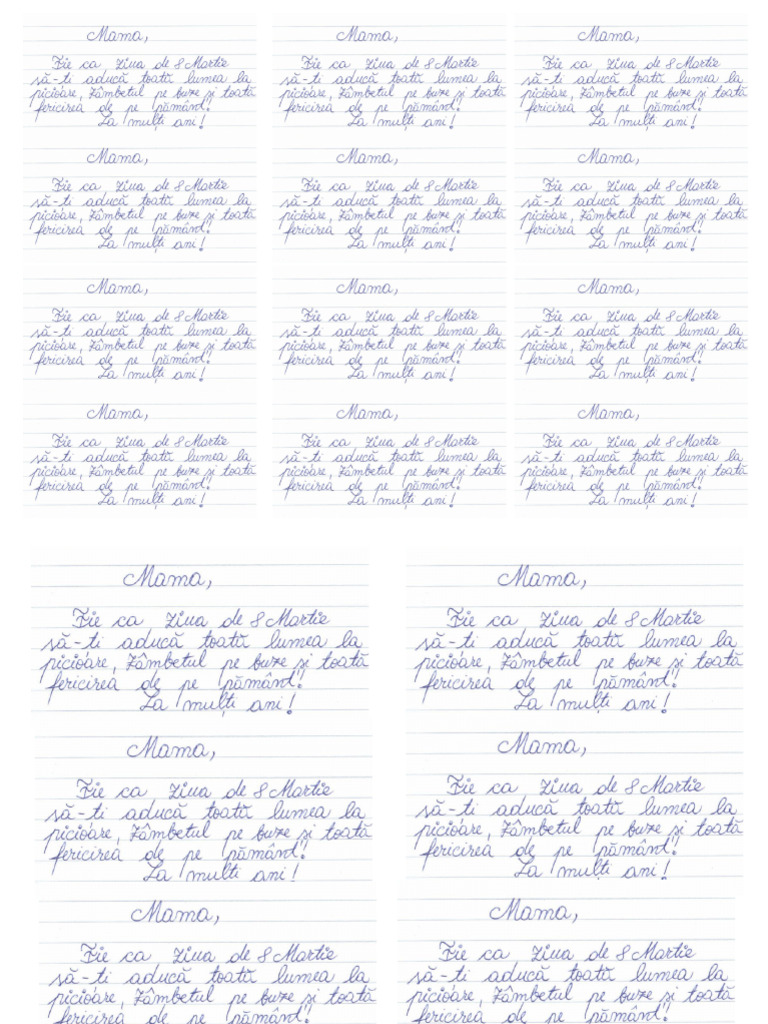 Mama,
Fie ca Ziua de 8 Martie
să-ti aducă toată lumea la
picioare, Zâmbetul pe buze și toată
fericirea de pe pământ!
La mulți ani!
Mama,
Fie ca Ziua de 8 Martie
să-ti aducă toată lumea la
picioare, Zâmbetul pe buze și toată
fericirea de pe pământ!
La mulți ani!
Mama,
Fie ca Ziua de 8 Martie
să-ti aducă toată lumea la
picioare, Zâmbetul pe buze și toată
fericirea de pe pământ!
La mulți ani!
Mama,
Fie ca Ziua de 8 Martie
să-ti aducă toată lumea la
picioare, Zâmbetul pe buze și toată
fericirea de pe pământ!
La mulți ani!
Mama,
Fie ca Ziua de 8 Martie
să-ti aducă toată lumea la
picioare, Zâmbetul pe buze și toată
fericirea de pe pământ!
La mulți ani!
Mama,
Fie ca Ziua de 8 Martie
să-ti aducă toată lumea la
picioare, Zâmbetul pe buze și toată
fericirea de pe pământ!
La mulți ani!
Mama,
Fie ca Ziua de 8 Martie
să-ti aducă toată lumea la
picioare, Zâmbetul pe buze și toată
fericirea de pe pământ!
La mulți ani!
Mama,
Fie ca Ziua de 8 Martie
să-ti aducă toată lumea la
picioare, Zâmbetul pe buze și toată
fericirea de pe pământ!
La mulți ani!
Mama,
Fie ca Ziua de 8 Martie
să-ti aducă toată lumea la
picioare, Zâmbetul pe buze și toată
fericirea de pe pământ!
La mulți ani!
Mama,
Fie ca Ziua de 8 Martie
să-ti aducă toată lumea la
picioare, Zâmbetul pe buze și toată
fericirea de pe pământ!
La mulți ani!
Mama,
Fie ca Ziua de 8 Martie
să-ti aducă toată lumea la
picioare, Zâmbetul pe buze și toată
fericirea de pe pământ!
La mulți ani!
Mama,
Fie ca Ziua de 8 Martie
să-ti aducă toată lumea la
picioare, Zâmbetul pe buze și toată
fericirea de pe pământ!
La mulți ani!
Mama,
Fie ca Ziua de 8 Martie
să-ti aducă toată lumea la
picioare, Zâmbetul pe buze și toată
fericirea de pe pământ!
La mulți ani!
Mama,
Fie ca Ziua de 8 Martie
să-ti aducă toată lumea la
picioare, Zâmbetul pe buze și toată
fericirea de pe pământ!
La mulți ani!
Mama,
Fie ca Ziua de 8 Martie
să-ti aducă toată lumea la
picioare, Zâmbetul pe buze și toată
fericirea de pe pământ!
La mulți ani!
Mama,
Fie ca Ziua de 8 Martie
să-ti aducă toată lumea la
picioare, Zâmbetul pe buze și toată
fericirea de pe pământ!
La mulți ani!
Mama,
Fie ca Ziua de 8 Martie
să-ti aducă toată lumea la
picioare, Zâmbetul pe buze și toată
fericirea de pe pământ!
Mama,
Fie ca Ziua de 8 Martie
să-ti aducă toată lumea la
picioare, Zâmbetul pe buze și toată
fericirea de pe pământ!